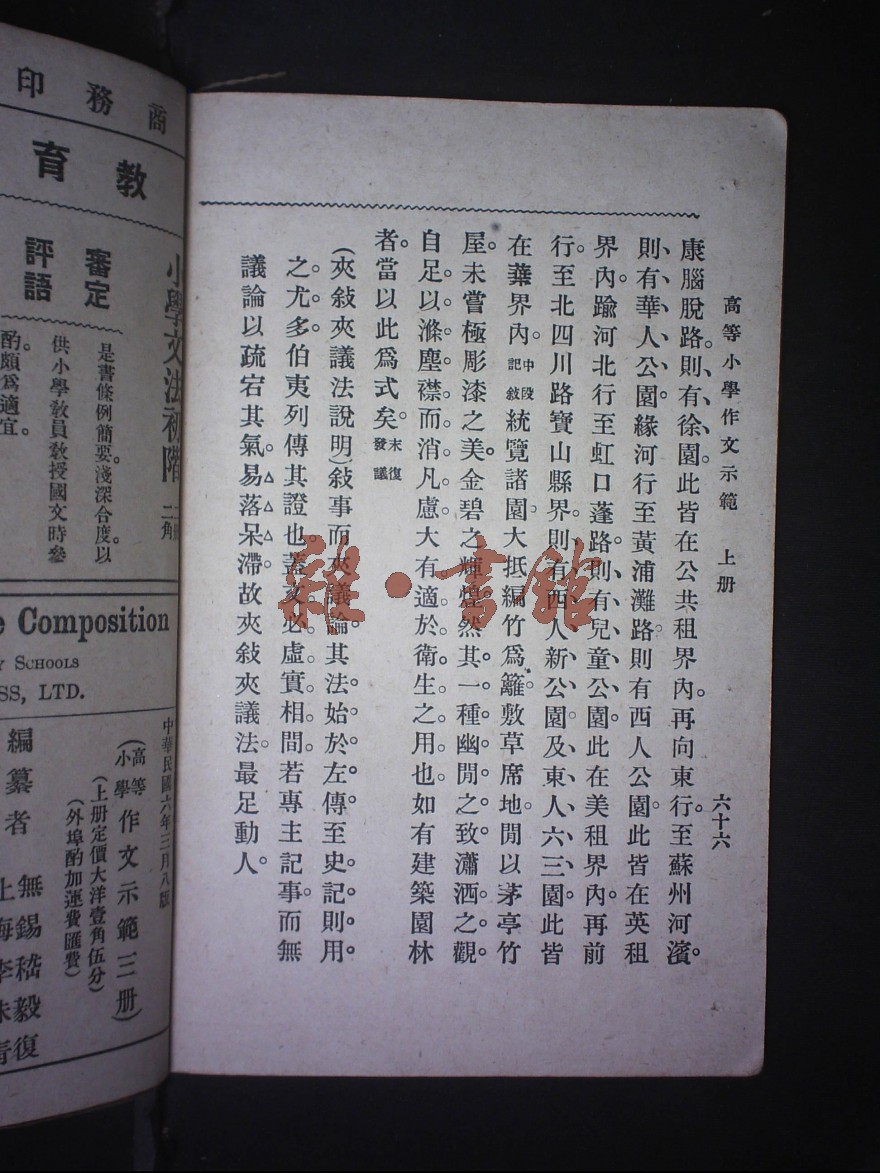 高等小學作文示範　上册　六十六
康腦脫路。則有徐園。此皆在公共租界內。再向東行。至蘇州河濱。
則有華人公園。緣河行至黃浦灘路。則有西人公園。此皆在英租
界內。踰河北行至虹口蓬路。則有兒童公園。此在美租界內。再前
行。至北四川路寶山縣界。則有西人新公園。及東人六三園。此皆
在華界內。中段記敍統覽諸園。大抵編竹爲籬。敷草席地。閒以茅亭竹
屋。未嘗極彫漆之美。金碧之輝煌。然其一種幽閒之致。瀟洒之觀。
自足以滌塵襟。而消凡慮。大有適於衛生之用也。如有建築園林
者。當以此爲式矣。末復發議
(夾敍夾議法說明)敍事而夾議論。其法始於左傳。至史記則用
之尤多。伯夷列傳其證也。蓋文必虛實相間。若專主記事。而無
議論以疏宕其氣。易落呆滯。故夾敍夾議法。最足動人。
商務印
教育
小學文法初階
二角
審定
是書條例簡要。淺深合度。以
供小學教員教授國文時參
評語
酌。頗爲適宜。
Composition
Y SCHOOLS
SS, LTD.
中華民國六年三月八版
(高等小學作文示範三册)
(上册定價大洋壹角伍分)
(外埠酌加運費匯費)
編纂者
無錫嵇毅復
上海李